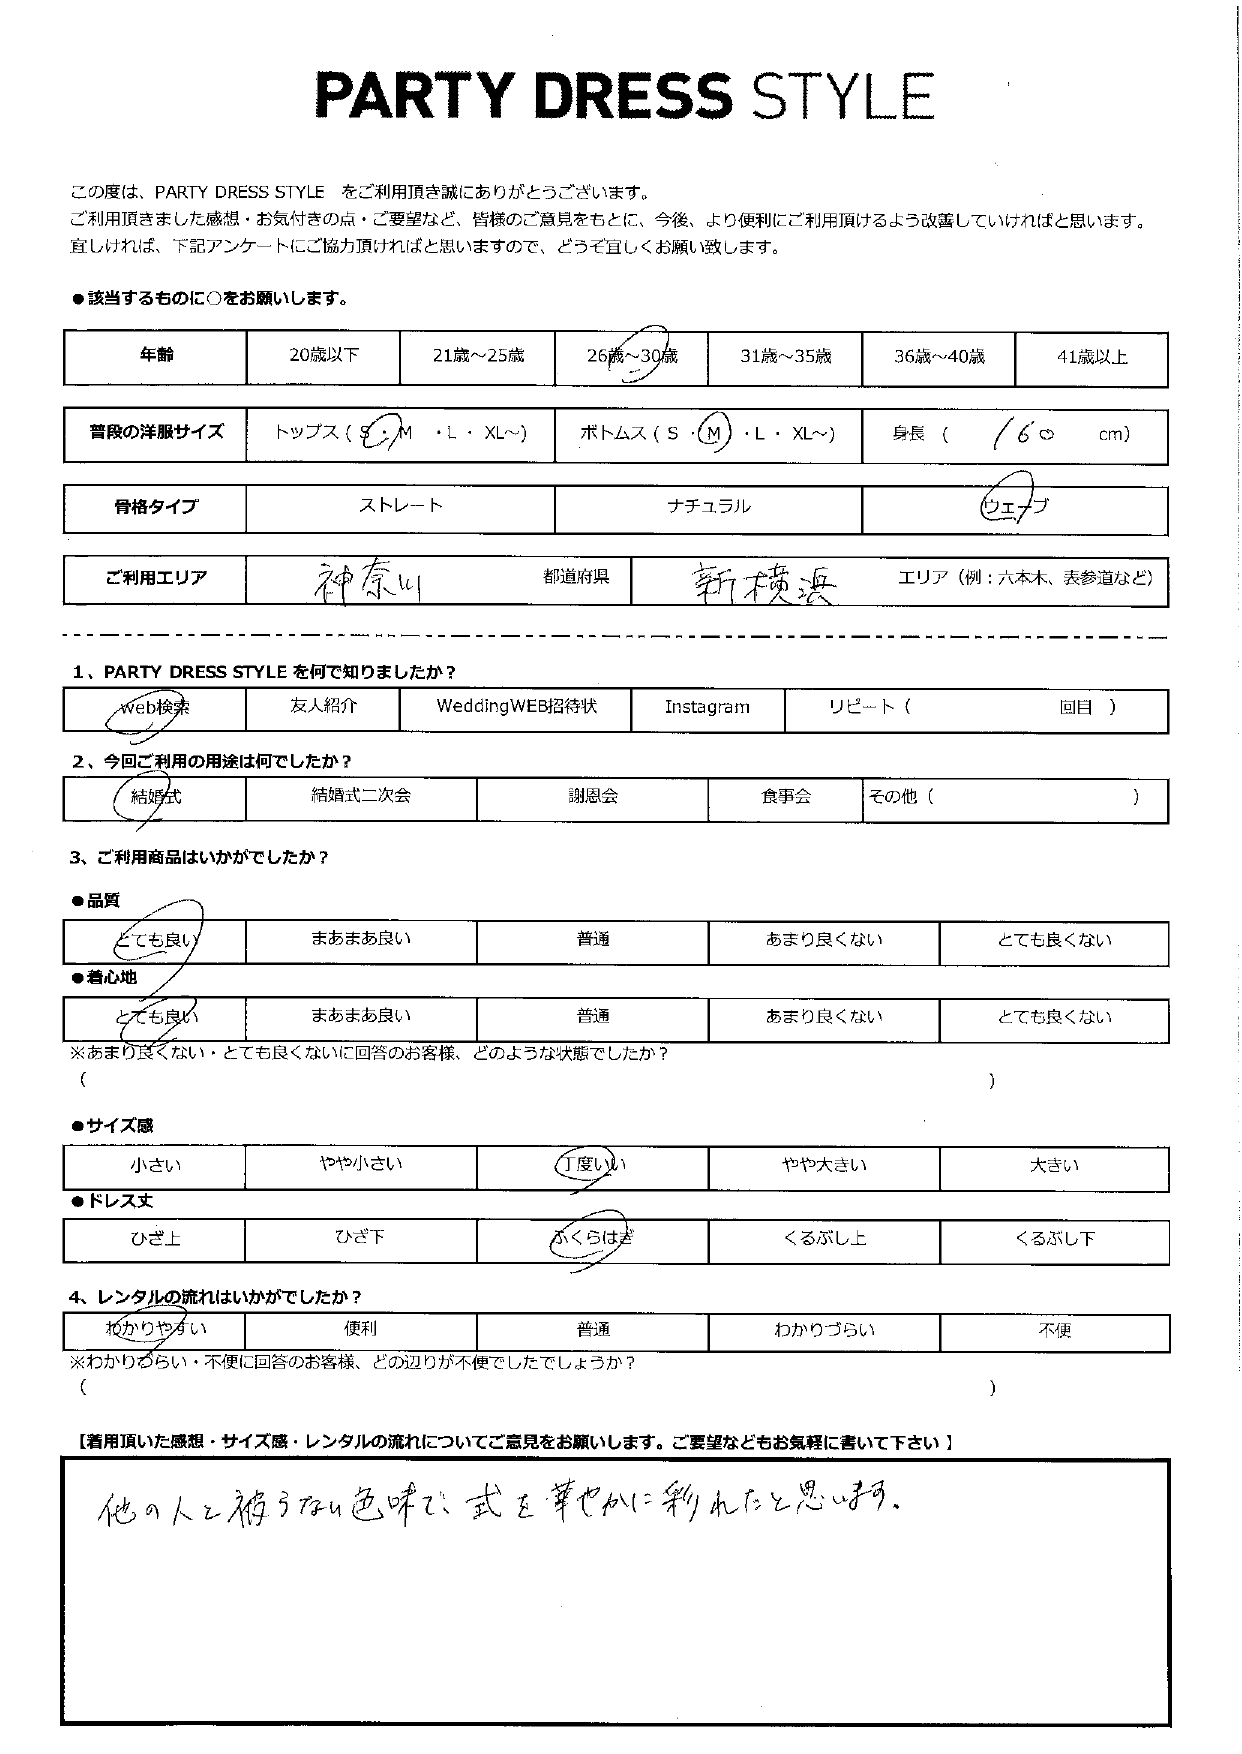 PARTY DRESS STYLE
この度は、PARTY DRESS STYLE をご利用頂き誠にありがとうございます。
ご利用頂きました感想・お気付きの点・ご要望など、皆様のご意見をもとに、今後、より便利にご利用頂けるよう改善していければと思います。
宜しければ、下記アンケートにご協力頂ければと思いますので、どうぞ宜しくお願い致します。
●該当するものに○をお願いします。
年齢 20歳以下 21歳～25歳 26歳～30歳 31歳～35歳 36歳～40歳 41歳以上
普段の洋服サイズ トップス ( S ・ M ・L ・ XL～) ボトムス ( S ・ M ・L ・ XL～) 身長 ( 160 cm)
骨格タイプ ストレート ナチュラル ウェーブ
ご利用エリア 神奈川 都道府県 新横浜 エリア（例：六本木、表参道など）
1、PARTY DRESS STYLE を何で知りましたか？
web検索 友人紹介 WeddingWEB招待状 Instagram リピート（ 回目 ）
2、今回ご利用の用途は何でしたか？
結婚式 結婚式二次会 謝恩会 食事会 その他（ ）
3、ご利用商品はいかがでしたか？
●品質
とても良い まあまあ良い 普通 あまり良くない とても良くない
●着心地
とても良い まあまあ良い 普通 あまり良くない とても良くない
※あまり良くない・とても良くないに回答のお客様、どのような状態でしたか？
（ ）
●サイズ感
小さい やや小さい 丁度いい やや大きい 大きい
●ドレス丈
ひざ上 ひざ下 ふくらはぎ くるぶし上 くるぶし下
4、レンタルの流れはいかがでしたか？
わかりやすい 便利 普通 わかりづらい 不便
※わかりづらい・不便に回答のお客様、どの辺りが不便でしたでしょうか？
（ ）
【着用頂いた感想・サイズ感・レンタルの流れについてご意見をお願いします。ご要望などもお気軽に書いて下さい 】
他の人と被らない色味で、式を華やかに彩れたと思います。